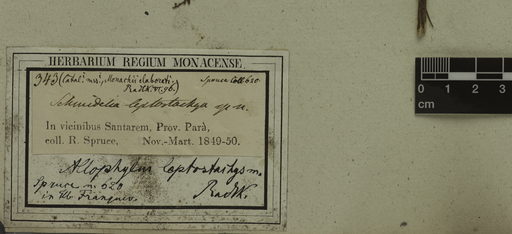 HERBARIUM REGIUM MONACENSE.
343 (Catal. mss. Monachii elaborati, Spruce Coll. 620
Radlk. VI. 96.)
Schmidelia leptostachya sp. n.
In vicinibus Santarem, Prov. Parà,
coll. R. Spruce, Nov.-Mart. 1849-50.
Allophylus leptostachys m.
Spruce n. 620
in Hb. Franquev. Radlk.
0 1 2 3
cm